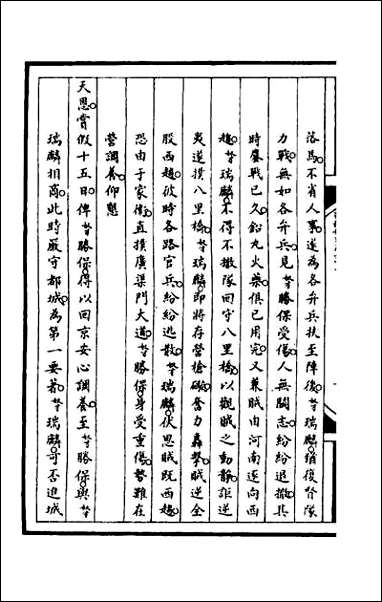 落馬不省人事遂為各弁兵扶至陣後奴才瑞麟猶復督隊
力戰無如各弁兵見奴才勝保受傷人無鬭志紛紛退撤其
時鏖戰已久鉛丸火藥俱已用完又兼賊由河南逐向西
趨奴才瑞麟不得不撤隊回守八里橋以觀賊之動靜詎逆
夷逆撲八里橋奴才瑞麟即將存營槍礮奮力轟擊賊逆全
股西趨彼時各路官兵紛紛逃散奴才瑞麟伏思賊既西趨
恐由于家衛直撲廣渠門大道奴才勝保身受重傷勢難在
營調養仰懇
天恩賞假十五日俾奴才勝保得以回京安心調養至奴才勝保與奴才
瑞麟相商此時嚴守都城為第一要著奴才瑞麟可否進城